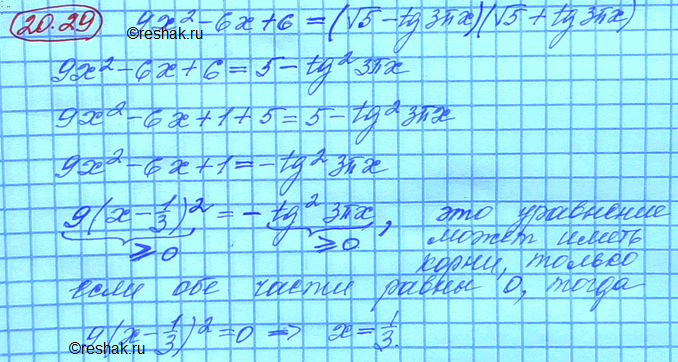 20.29 9x² - 6x + 6 = (√5 - tg 3πx)(√5 + tg 3πx)
©reshak.ru
9x² - 6x + 6 = 5 - tg² 3πx
9x² - 6x + 1 + 5 = 5 - tg² 3πx
9x² - 6x + 1 = - tg² 3πx
9(x - 1/3)² = - tg² 3πx, это уравнение
≥ 0 ≥ 0 может иметь
корни, только
если обе части равны 0, тогда
9(x - 1/3)² = 0 => x = 1/3.
©reshak.ru